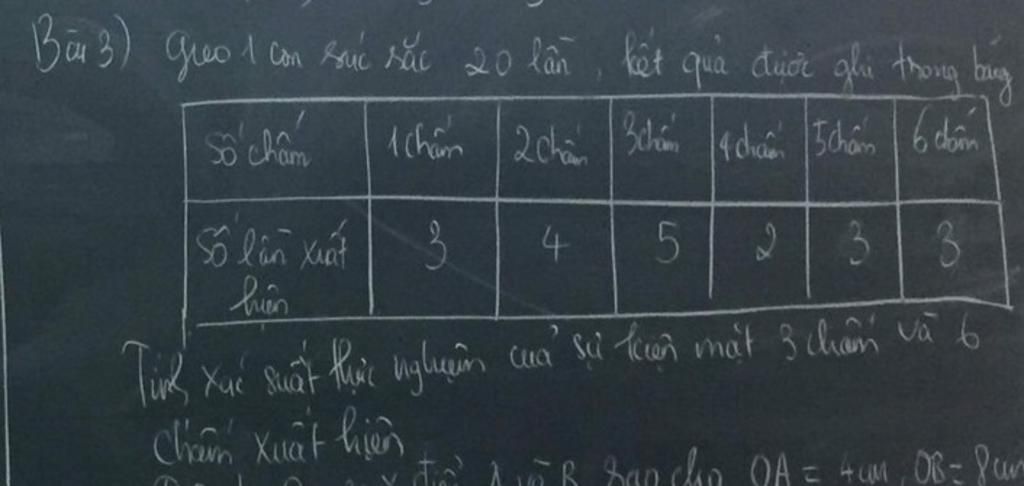 Bài 3) Gieo 1 con xúc sắc 20 lần, kết quả được ghi trong bảng
Số chấm 1 chấm 2 chấm 3 chấm 4 chấm 5 chấm 6 chấm
Số lần xuất 3 4 5 2 3 3
hiện
Tính xác suất thực nghiệm của sự kiện mặt 3 chấm và 6
chấm xuất hiện
điểm A và B sao cho OA = 4cm, OB = 8cm